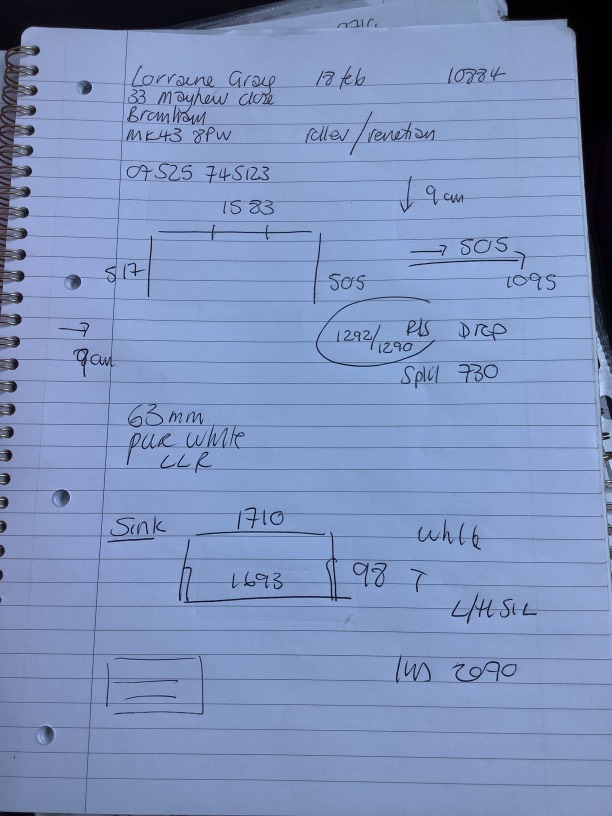 Lorraine Gray 18 feb 10884
33 Mayhew close
Bromham
MK43 8PW roller/venetian
07525 745123
↓ 9cm
1583
→ 505
517
505
1095
→
9cm
1292/1290 Drop
Split 730
63mm
pure white
LLR
Sink 1710 white
1693 98
L/H
2090